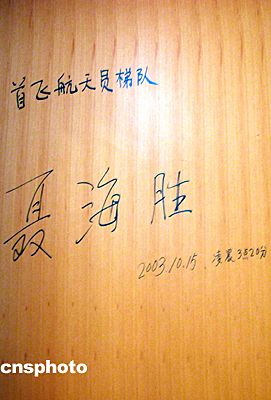 首飞航天员梯队
聂海胜
2003.10.15. 凌晨3点20分
cnsphoto